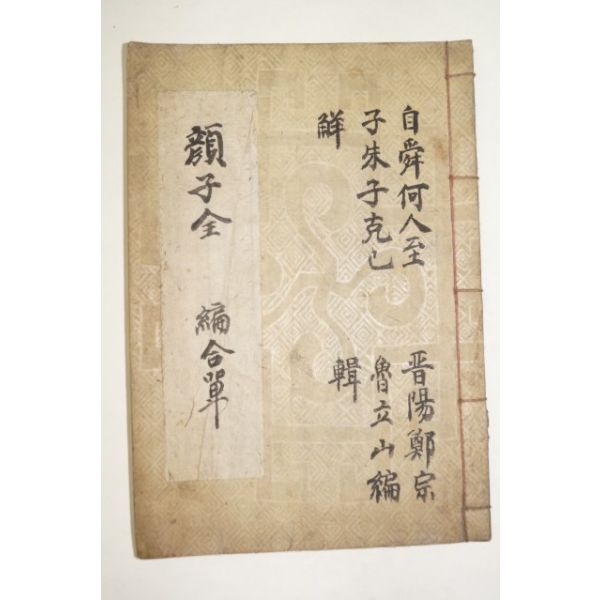 自舜何人至
子朱子克己
解
晋陽鄭宗
魯立山編
輯
顔子全
編合單